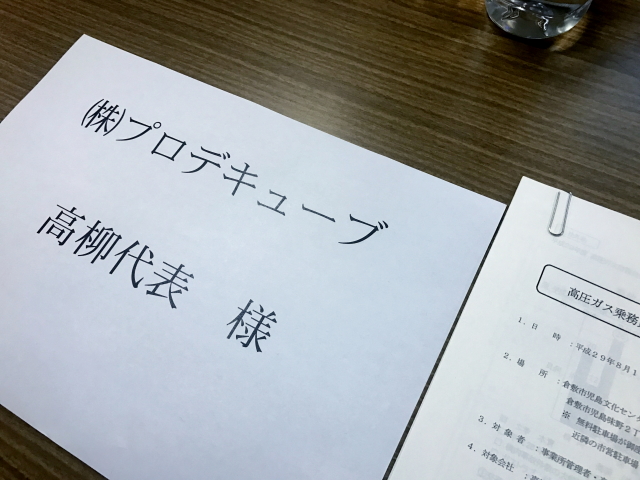 ㈱プロデキューブ
高柳代表 様
高圧ガス乗務
1. 日 時 :平成29年8月1
2. 場 所 :倉敷市児島文化セン
倉敷市児島味野2丁
※ 無料駐車場が
近隣の市営駐車場
3. 対象者 :事業所管理者・
4. 対象会社 :